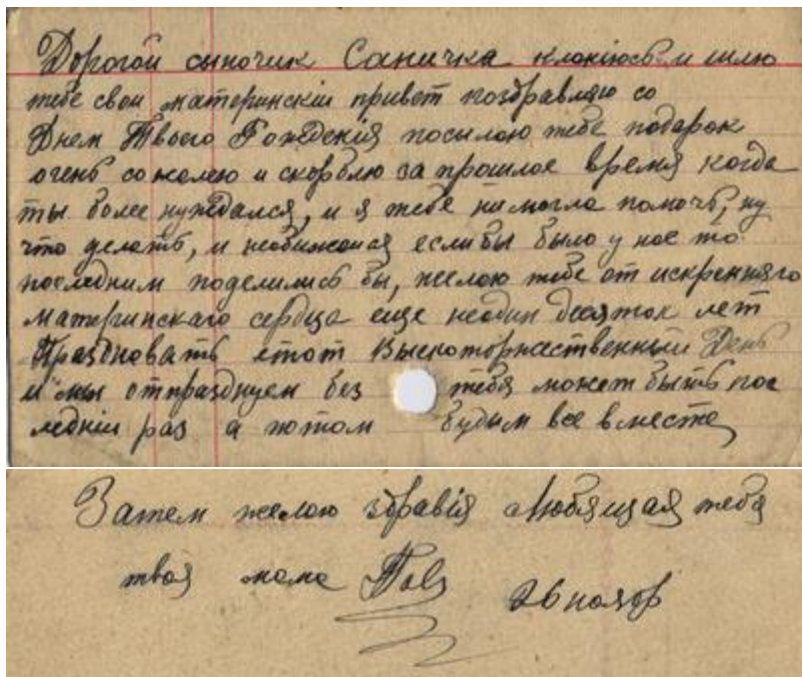 Дорогой сыночик Саничка кланіюсь и шлю
тебе свои материнскіи привет поздравляю со
Днем Твоего Рождениія посылою тебе подарок
очень сожелею и скорблю за прошлое время когда
ты более нуждался, и я тебе ни могла помочь, ну
что делать, и необижайся еслибы было у нас то
последним поделились бы, желою тебе от искренняго
материнскаго сердца еще неодин десяток лет
Праздновать етот Высокоторжественный День
и мы отпразднуем без тебя может быть пос
ледніи раз а потом будим все вместе
Затем желою здравія Любящая тебя
твоя мама 26 нояб